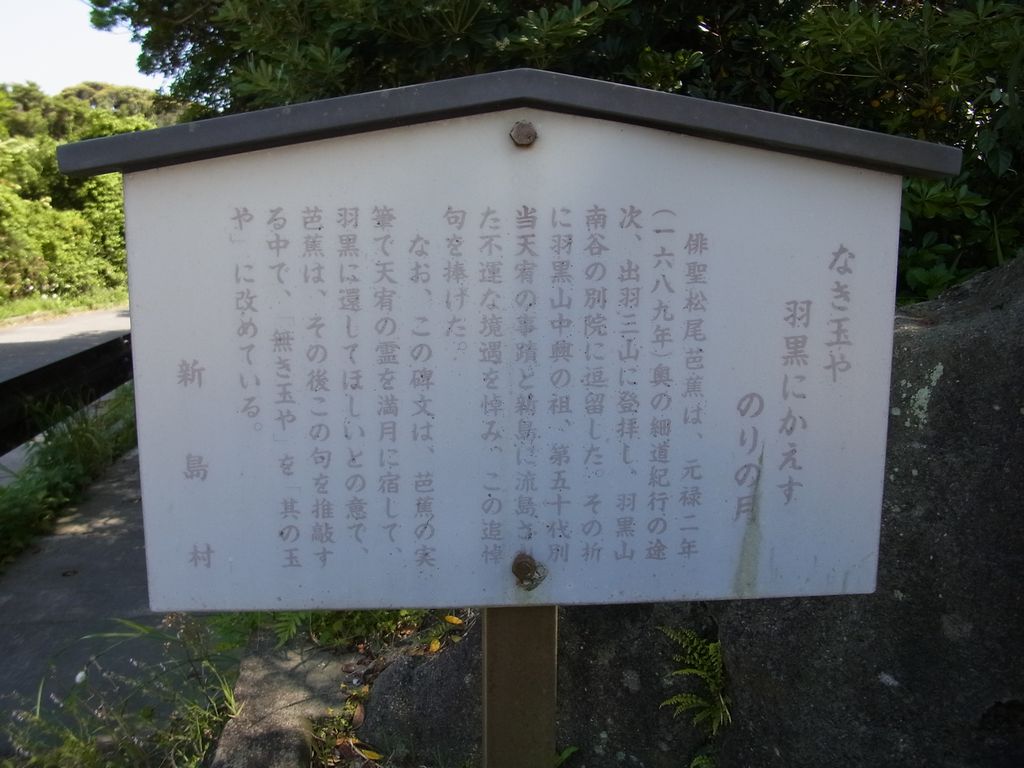 なき玉や
羽黒にかえす
のりの月
俳聖松尾芭蕉は、元禄二年
(一六八九年)奥の細道紀行の途
次、出羽三山に登拝し、羽黒山
南谷の別院に逗留した。その折
に羽黒山中興の祖、第五十代別
当天宥の事蹟と新島に流島され
た不運な境遇を悼み、この追悼
句を捧げた。
なお、この碑文は、芭蕉の実
筆で天宥の霊を満月に宿して、
羽黒に還してほしいとの意で、
芭蕉は、その後この句を推敲す
る中で、「無き玉や」を「其の玉
や」に改めている。
新島村